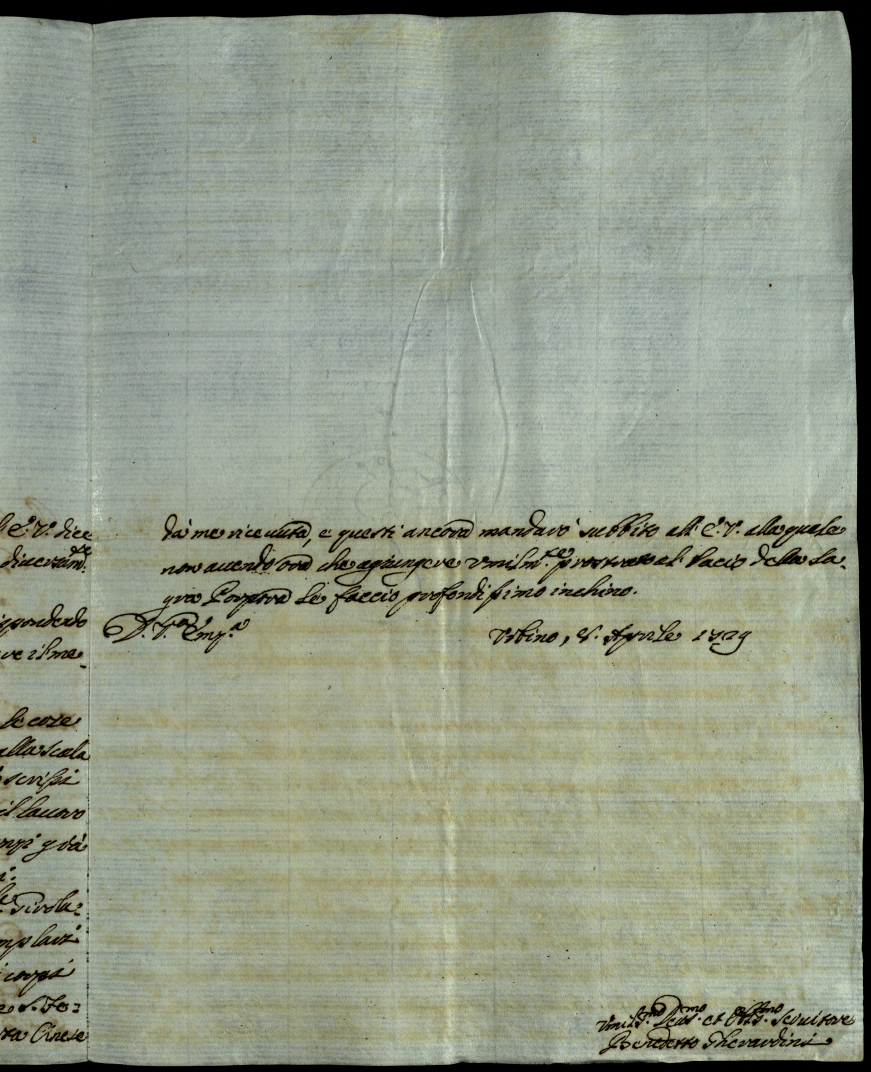 E. V. dice
diversam.te
ispondendo
ve il me-
le cose
alla scala
scrissi
il lavoro
mp.i p da
Girola=
mplari
corpi
e S. Fe=
ta Cinese
da me ricevuta, e questi ancora mandarò subbito all' E. V. alla quale
non avendo ora che agiungere vmilm.te prostrato al bacio della Sa-
gra Porpora le faccio profondissimo inchino.
D. V.ra Em.za
Vrbino, 8. Aprile 1729
Vmiliss.mo Deu.mo et Obb.mo Seruitore
Benedetto Gherardini